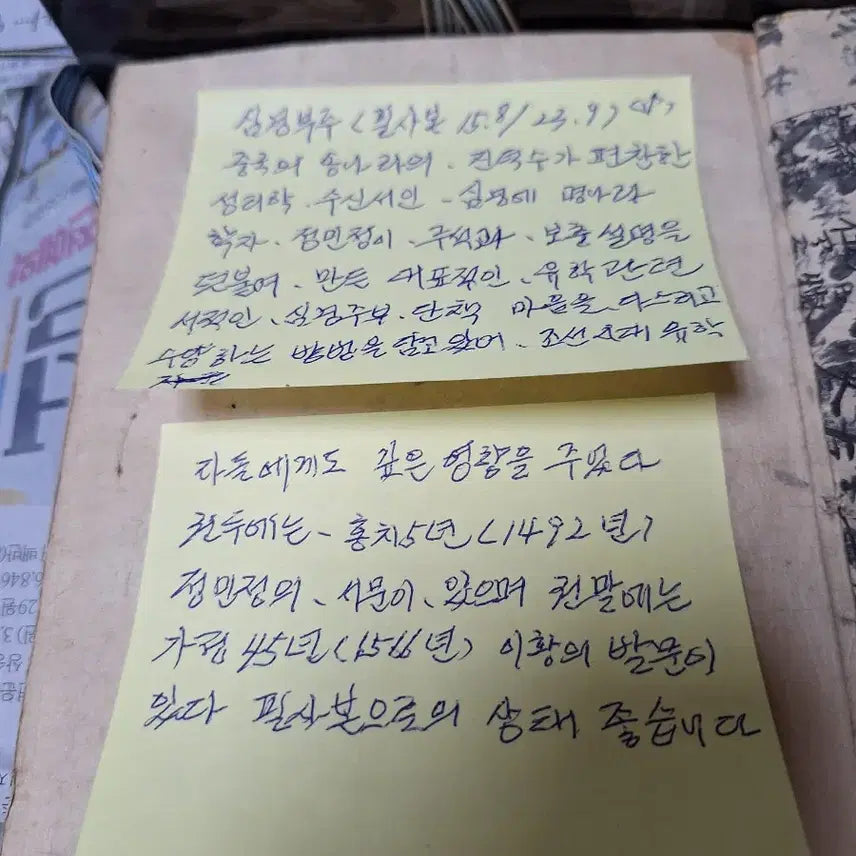 심경부주 (필사본 15.8/23.9)
중국의 송나라의. 진덕수가 편찬한
성리학. 수신서인 - 심경에 명나라
학자. 정민정이. 주석과. 보충설명을
덧붙여. 만든 대표적인. 유학관련
서적인. 심경주부. 단책 마음을. 다스리고
수양하는 방법을 담고 있어. 조선시대 유학
자들에게도 깊은 영향을 주었다
권두에는 - 홍치5년 (1492년)
정민정의. 서문이. 있으며 권말에는
가정 45년 (1566년) 이황의 발문이
있다 필사본으로의 상태 좋습니다